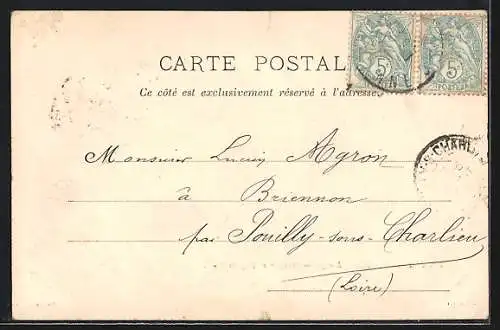 CARTE POSTAL
Ce côté est exclusivement réservé à l'adresse
5c 5c
POSTES
Monsieur Lucien Agron
CHARLI
à
Briennon
par Pouilly-sous-Charlieu
(Loire)